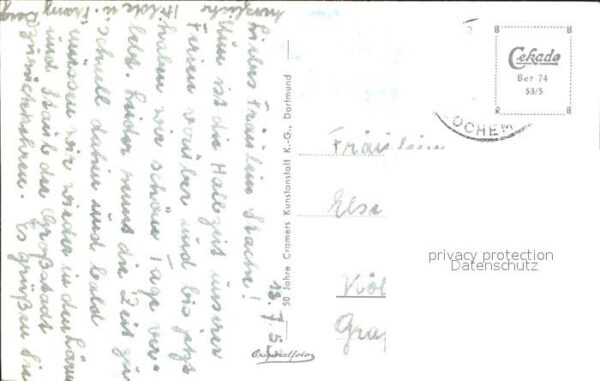 13.7.55
Liebes Fräulein
Nun ist die Halbzeit unserer
Ferien vorüber und bis jetzt
haben wir schöne Tage ver-
lebt. Leider rennt die Zeit zu
schnell dahin und bald
müssen wir wieder in den Lärm
und Staub der Großstadt
zurückkehren. Es grüßen Sie
herzlichst
Hilde u. Franz
50 Jahre Cramers Kunstanstalt K.-G., Dortmund
Originalfoto
Cekade
Ber 74
53/5
COCHEM
Fräulein
Else
Köl
Gra
privacy protection
Datenschutz